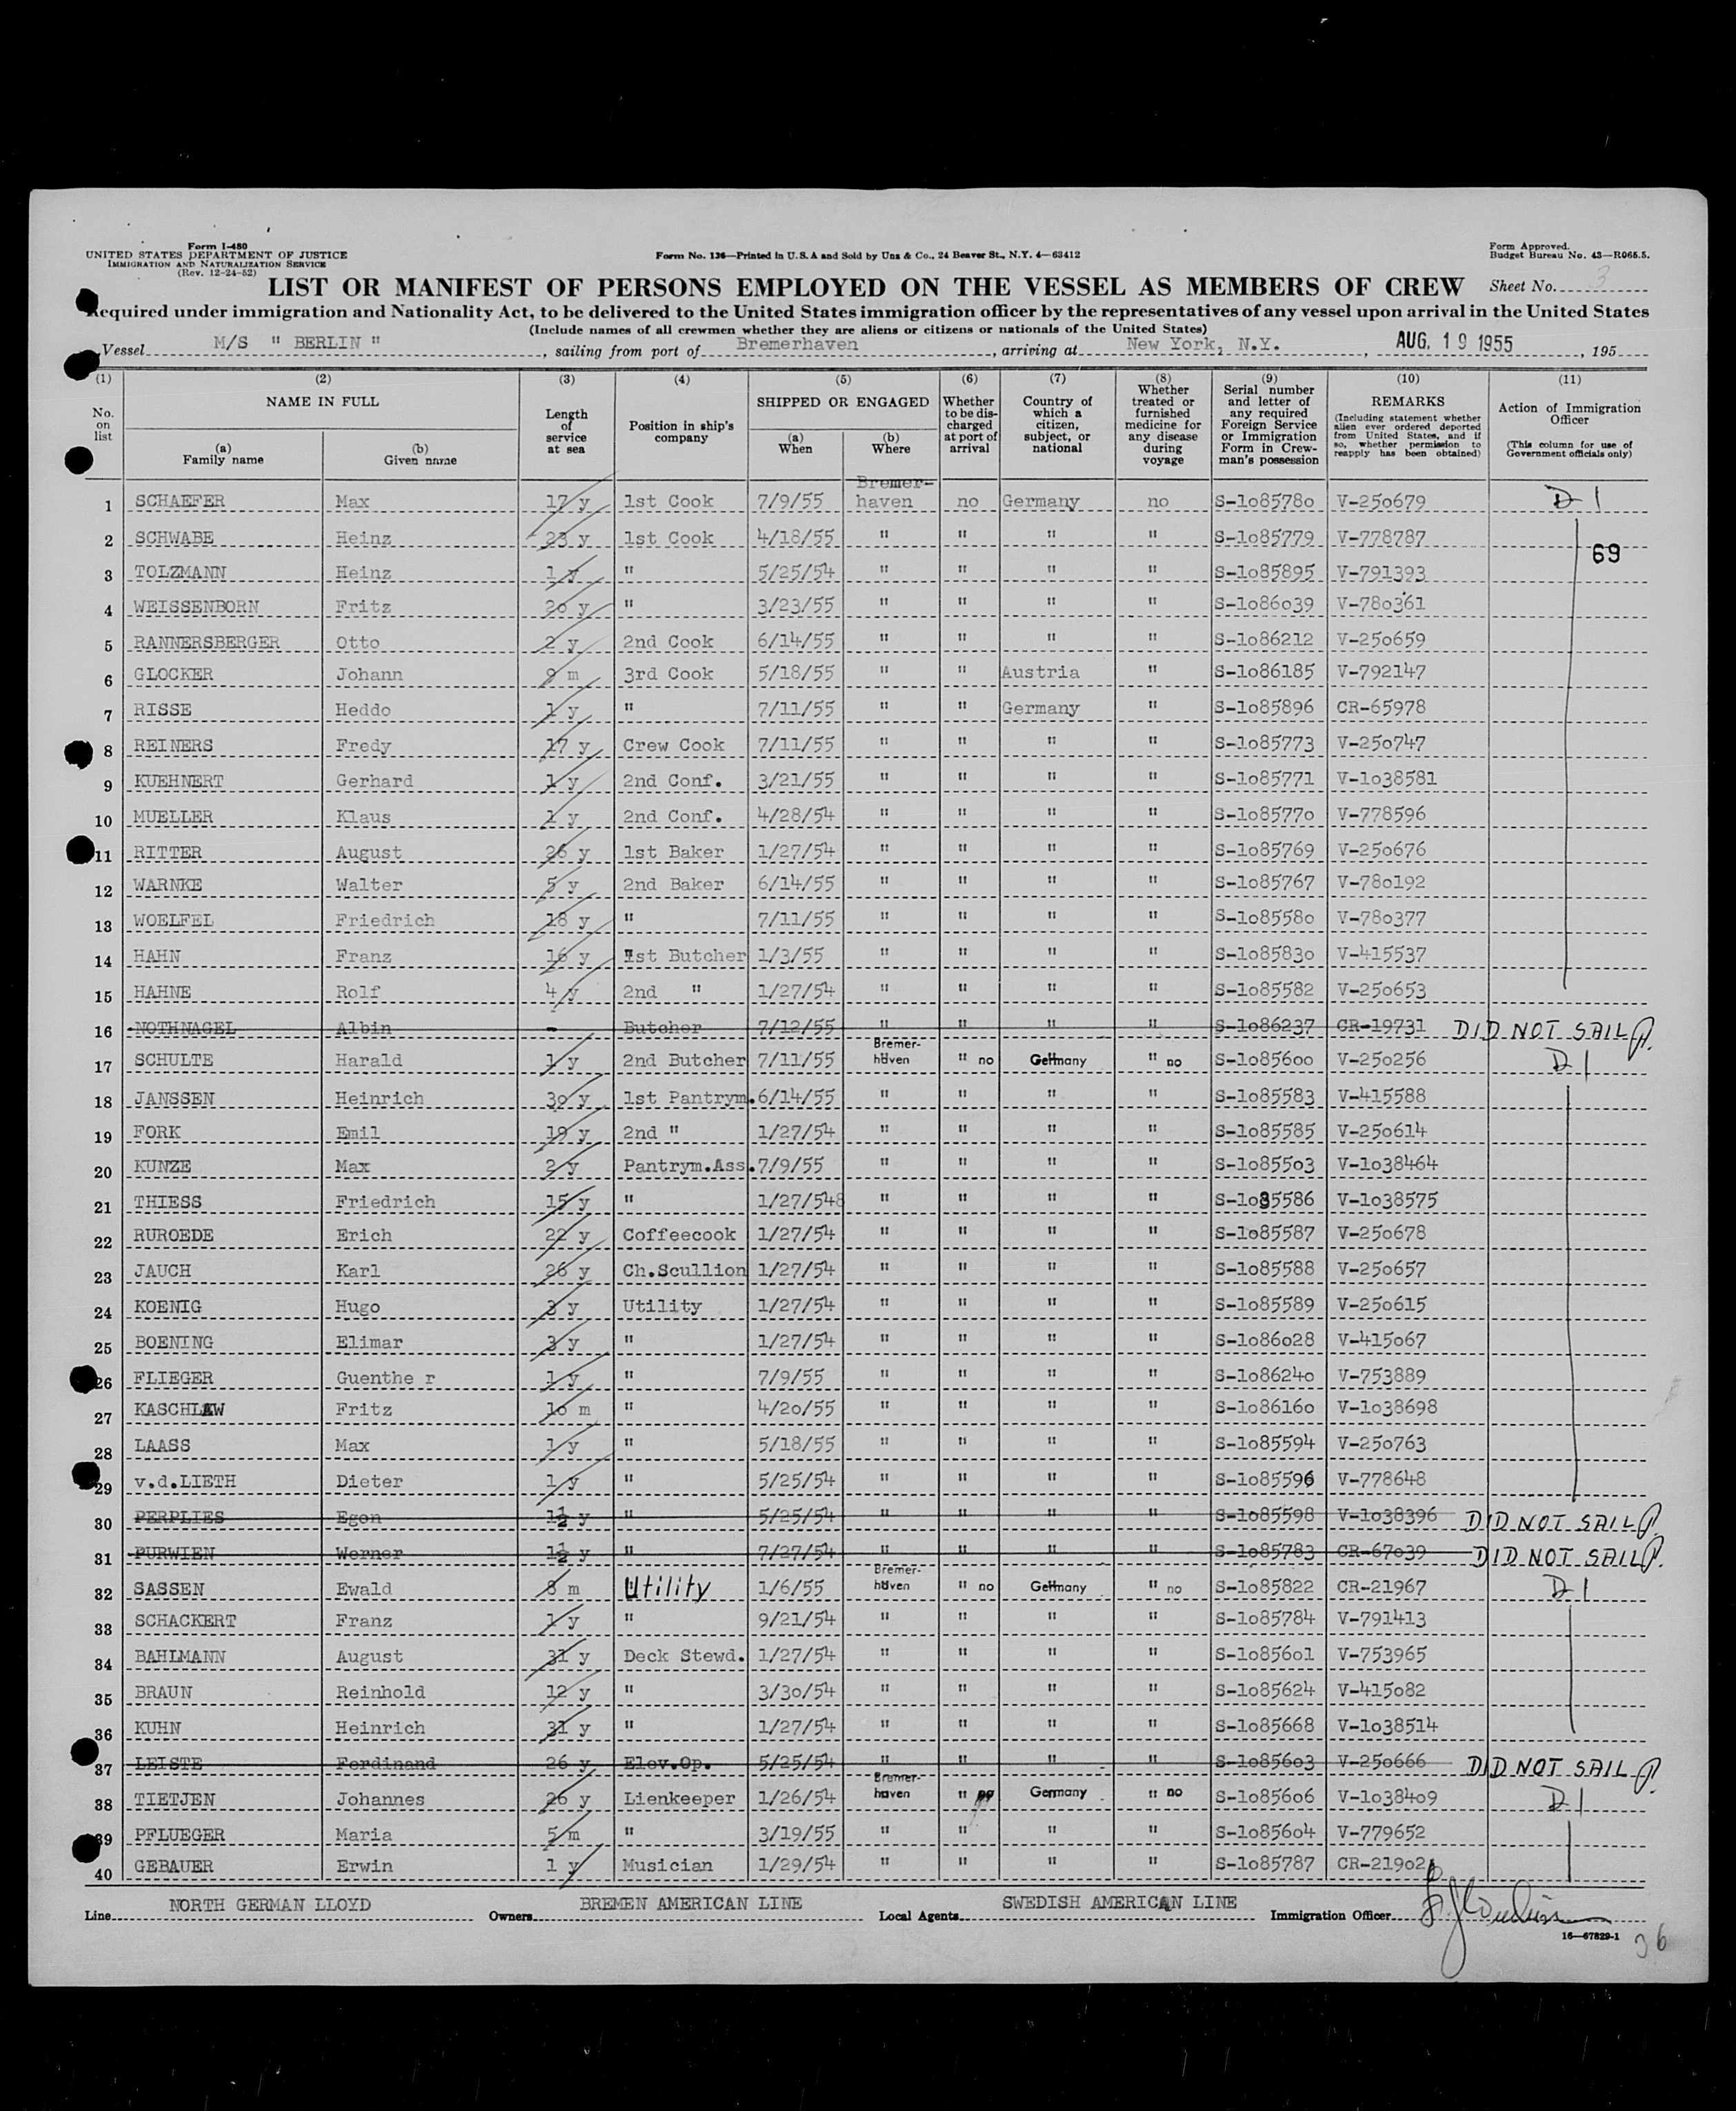 Form I-480
UNITED STATES DEPARTMENT OF JUSTICE
IMMIGRATION AND NATURALIZATION SERVICE
(Rev. 12-24-52)
Form No. 136—Printed in U.S.A and Sold by Unz & Co., 24 Beaver St., N.Y. 4—63412
Form Approved.
Budget Bureau No. 43—R065.5.
LIST OR MANIFEST OF PERSONS EMPLOYED ON THE VESSEL AS MEMBERS OF CREW
Sheet No. 3
Required under immigration and Nationality Act, to be delivered to the United States immigration officer by the representatives of any vessel upon arrival in the United States
(Include names of all crewmen whether they are aliens or citizens or nationals of the United States)
Vessel M/S " BERLIN ", sailing from port of Bremerhaven, arriving at New York, N.Y., AUG. 19 1955, 195
(1) No. on list
(2) NAME IN FULL (a) Family name (b) Given name
(3) Length of service at sea
(4) Position in ship's company
(5) SHIPPED OR ENGAGED (a) When (b) Where
(6) Whether to be discharged at port of arrival
(7) Country of which a citizen, subject, or national
(8) Whether treated or furnished medicine for any disease during voyage
(9) Serial number and letter of any required Foreign Service or Immigration Form in Crewman's possession
(10) REMARKS (Including statement whether alien ever ordered deported from United States, and if so, whether permission to reapply has been obtained)
(11) Action of Immigration Officer (This column for use of Government officials only)
1 SCHAEFER Max 17 y 1st Cook 7/9/55 Bremer-haven no Germany no S-1085780 V-250679 D 1
2 SCHWABE Heinz 23 y 1st Cook 4/18/55 " " " " S-1085779 V-778787
69
3 TOLZMANN Heinz 1 y " 5/25/54 " " " " S-1085895 V-791393
4 WEISSENBORN Fritz 20 y " 3/23/55 " " " " S-1086039 V-780361
5 RANNERSBERGER Otto 2 y 2nd Cook 6/14/55 " " " " S-1086212 V-250659
6 GLOCKER Johann 9 m 3rd Cook 5/18/55 " " Austria " S-1086185 V-792147
7 RISSE Heddo 1 y " 7/11/55 " " Germany " S-1085896 CR-65978
8 REINERS Fredy 17 y Crew Cook 7/11/55 " " " " S-1085773 V-250747
9 KUEHNERT Gerhard 1 y 2nd Conf. 3/21/55 " " " " S-1085771 V-1038581
10 MUELLER Klaus 1 y 2nd Conf. 4/28/54 " " " " S-1085770 V-778596
11 RITTER August 26 y 1st Baker 1/27/54 " " " " S-1085769 V-250676
12 WARNKE Walter 5 y 2nd Baker 6/14/55 " " " " S-1085767 V-780192
13 WOELFEL Friedrich 18 y " 7/11/55 " " " " S-1085580 V-780377
14 HAHN Franz 16 y 1st Butcher 1/3/55 " " " " S-1085830 V-415537
15 HAHNE Rolf 4 y 2nd " 1/27/54 " " " " S-1085582 V-250653
16 NOTHNAGEL Albin - Butcher 7/12/55 " " " " S-1086237 CR-19731 DID NOT SAIL
17 SCHULTE Harald 1 y 2nd Butcher 7/11/55 Bremer-haven " no Germany " no S-1085600 V-250256 D 1
18 JANSSEN Heinrich 30 y 1st Pantrym. 6/14/55 " " " " S-1085583 V-415588
19 FORK Emil 19 y 2nd " 1/27/54 " " " " S-1085585 V-250614
20 KUNZE Max 2 y Pantrym.Ass. 7/9/55 " " " " S-1085503 V-1038464
21 THIESS Friedrich 15 y " 1/27/548 " " " " S-1085586 V-1038575
22 RUROEDE Erich 22 y Coffeecook 1/27/54 " " " " S-1085587 V-250678
23 JAUCH Karl 26 y Ch.Scullion 1/27/54 " " " " S-1085588 V-250657
24 KOENIG Hugo 3 y Utility 1/27/54 " " " " S-1085589 V-250615
25 BOENING Elimar 3 y " 1/27/54 " " " " S-1086028 V-415067
26 FLIEGER Guenthe r 1 y " 7/9/55 " " " " S-1086240 V-753889
27 KASCHLAW Fritz 10 m " 4/20/55 " " " " S-1086160 V-1038698
28 LAASS Max 1 y " 5/18/55 " " " " S-1085594 V-250763
29 v.d.LIETH Dieter 1 y " 5/25/54 " " " " S-1085596 V-778648
30 PERPLIES Egon 1½ y " 5/25/54 " " " " S-1085598 V-1038396 DID NOT SAIL
31 PURWIEN Werner 1½ y " 7/27/54 " " " " S-1085783 CR-67039 DID NOT SAIL
32 SASSEN Ewald 8 m Utility 1/6/55 Bremer-haven " no Germany " no S-1085822 CR-21967 D 1
33 SCHACKERT Franz 1 y " 9/21/54 " " " " S-1085784 V-791413
34 BAHLMANN August 31 y Deck Stewd. 1/27/54 " " " " S-1085601 V-753965
35 BRAUN Reinhold 12 y " 3/30/54 " " " " S-1085624 V-415082
36 KUHN Heinrich 31 y " 1/27/54 " " " " S-1085668 V-1038514
37 LEISTE Ferdinand 26 y Elev.Op. 5/25/54 " " " " S-1085603 V-250666 DID NOT SAIL
38 TIETJEN Johannes 26 y Lienkeeper 1/26/54 Bremer-haven " no Germany " no S-1085606 V-1038409 D 1
39 PFLUEGER Maria 5 m " 3/19/55 " " " " S-1085604 V-779652
40 GEBAUER Erwin 1 y Musician 1/29/54 " " " " S-1085787 CR-21902
Line NORTH GERMAN LLOYD Owners BREMEN AMERICAN LINE Local Agents SWEDISH AMERICAN LINE Immigration Officer
16—67829-1
36